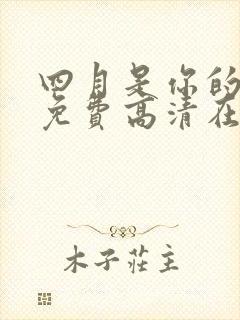 四月是你的
免费高清在
木子荘主